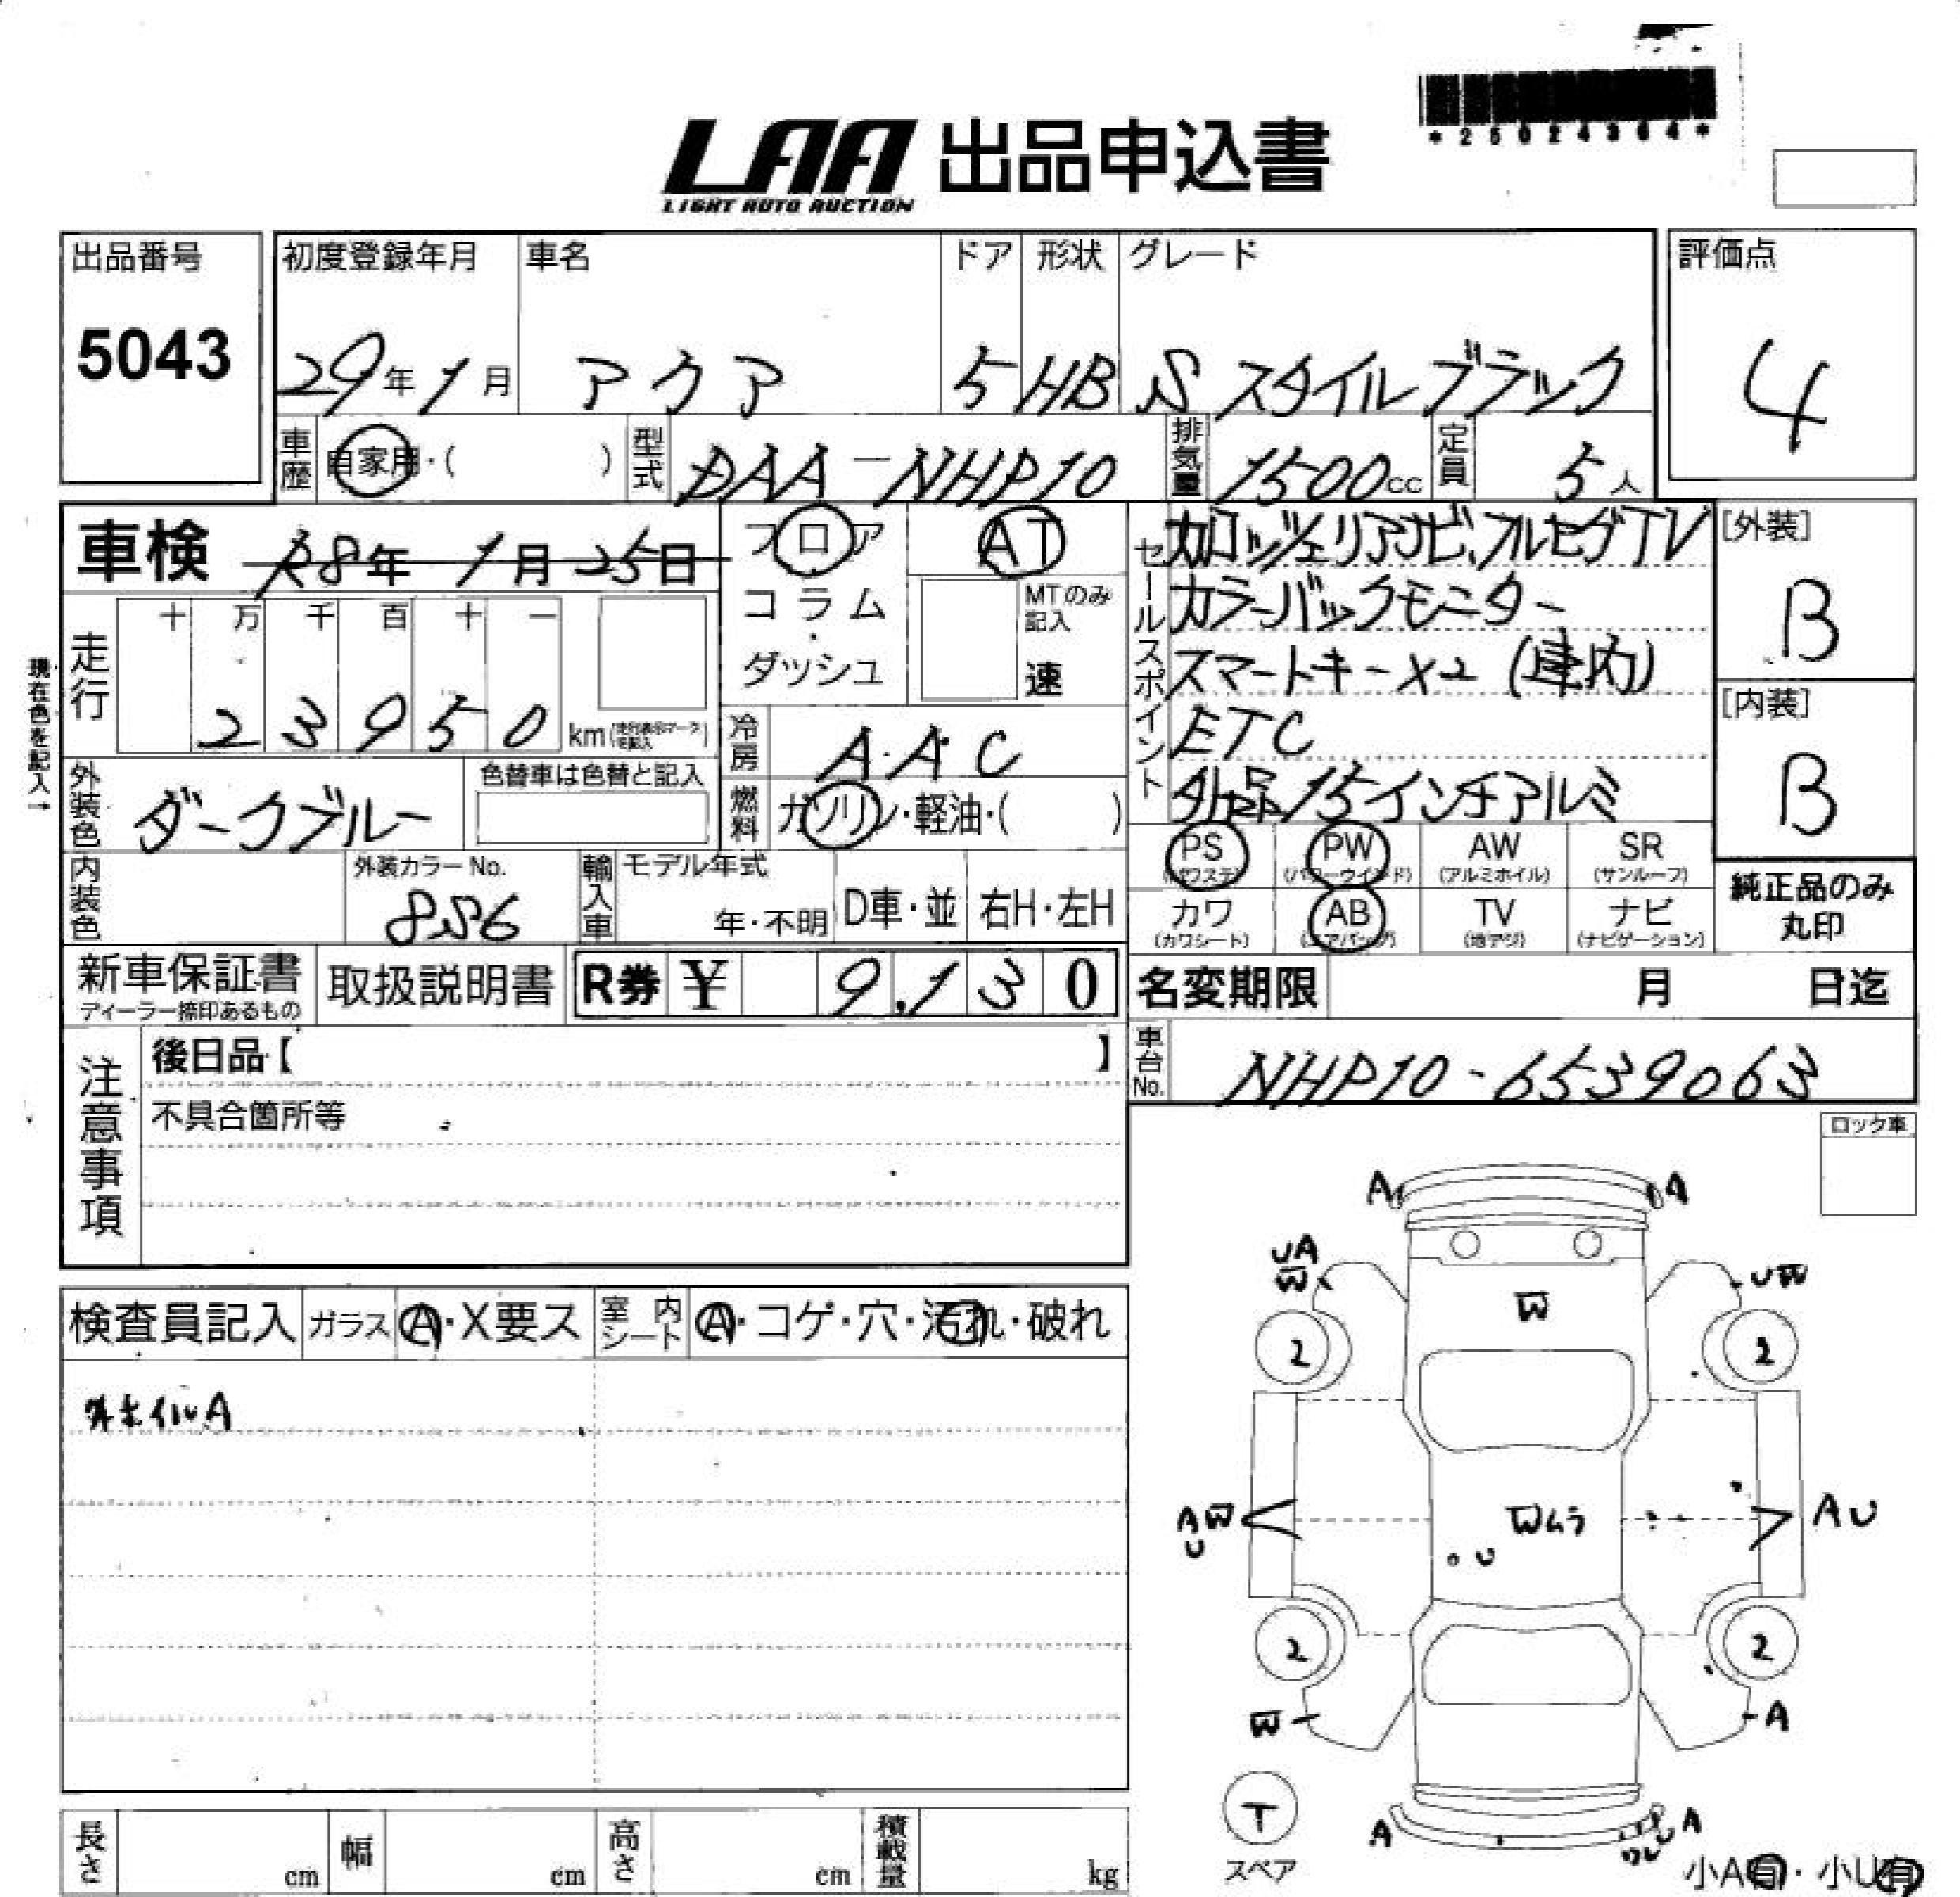 *25024364*
LAA 出品申込書
LIGHT AUTO AUCTION
出品番号 初度登録年月 車名 ドア 形状 グレード 評価点
5043 29年1月 アクア 5 HB S スタイルブラック 4
車歴 自家用・( ) 型式 DAA-NHP10 排気量 1500cc 定員 5人
車検 R8年 1月 25日 フロア AT セールスポイント カロッツェリアナビ、フルセグTV [外装]
コラム・ MTのみ記入 カラーバックモニター B
走行 十 万 千 百 十 一
ダッシュ 速 スマートキー×2 (車内)
現在色を記入→
2 3 9 5 0 km 冷房 A・A C ETC [内装]
外装色 ダークブルー 色替車は色替と記入 燃料 ガソリン・軽油・( ) 外品15インチアルミ B
内装色 外装カラーNo. 8S6 輸入車 モデル年式 年・不明 D車・並 右H・左H
PS (パワステ) PW (パワーウインド) AW (アルミホイル) SR (サンルーフ)
カワ (カワシート) AB (エアバッグ) TV (地デジ) ナビ (ナビゲーション)
純正品のみ
丸印
新車保証書 取扱説明書 R券 ¥ 9,130 名変期限 月 日迄
ディーラー捺印あるもの
車台No. NHP10-6539063
注意事項 後日品【 】
不具合箇所等
ロック車
A A
UA
W UW
W
2 2
検査員記入 ガラス A・X要ス 室内シート A・コゲ・穴・汚れ・破れ
外ホイルA
AW Wムラ AU
U
U
2 2
W A
T
スペア
A A
小A有・小U有
長さ cm 幅 cm 高さ cm 積載量 kg